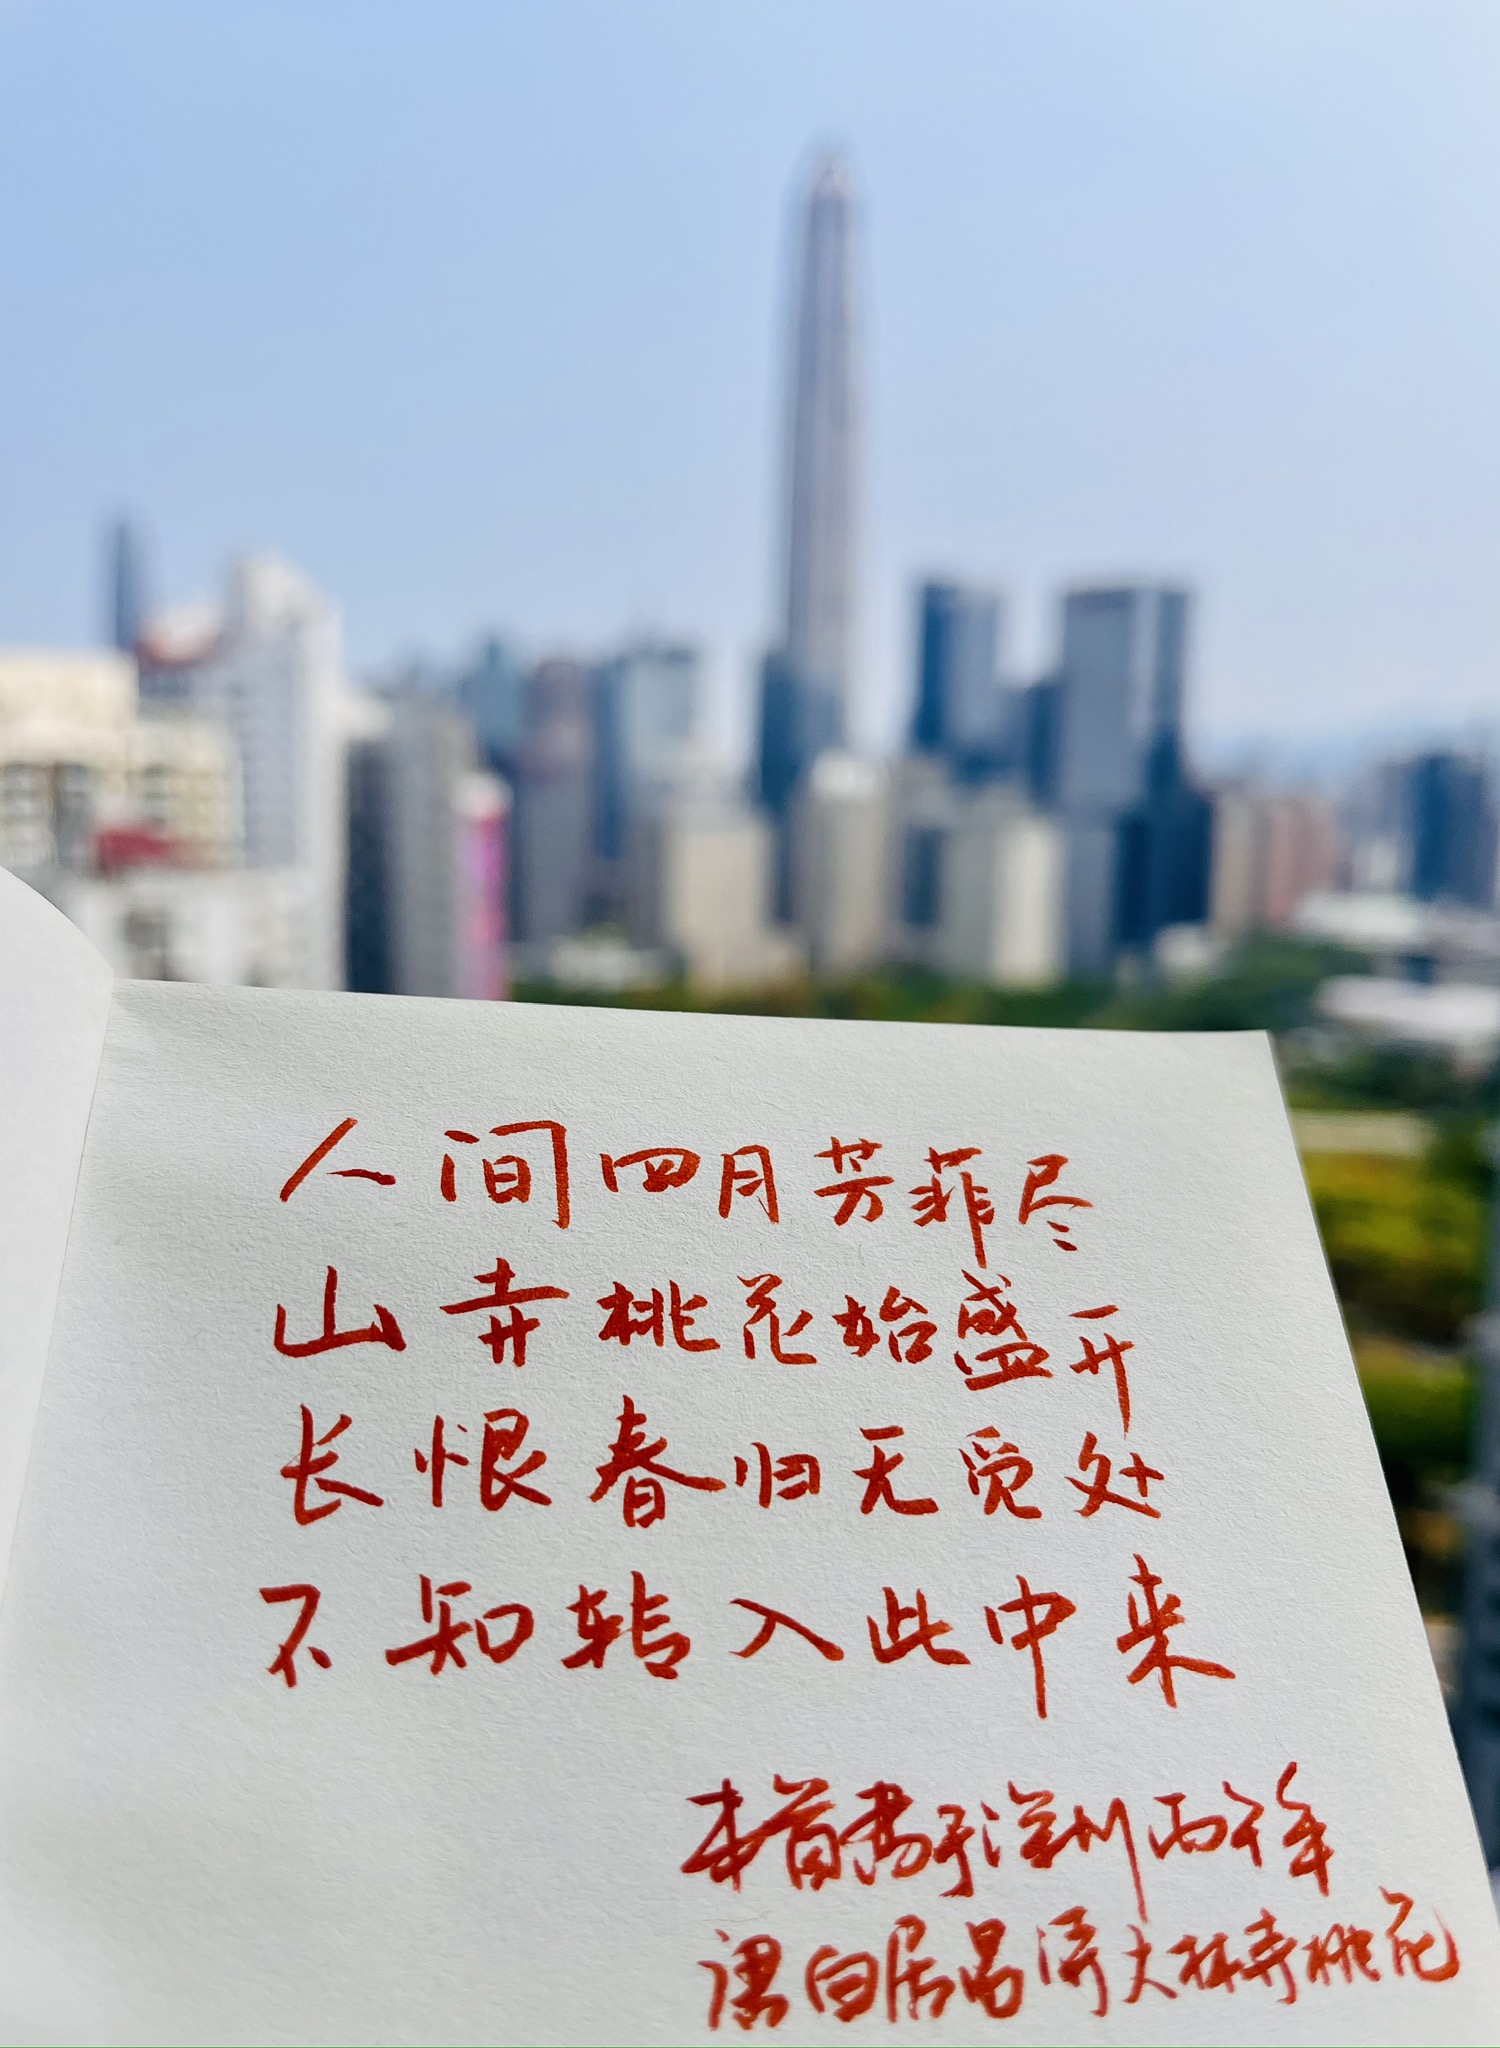 人间四月芳菲尽
山寺桃花始盛开
长恨春归无觅处
不知转入此中来
书于深圳
唐白居易诗大林寺桃花